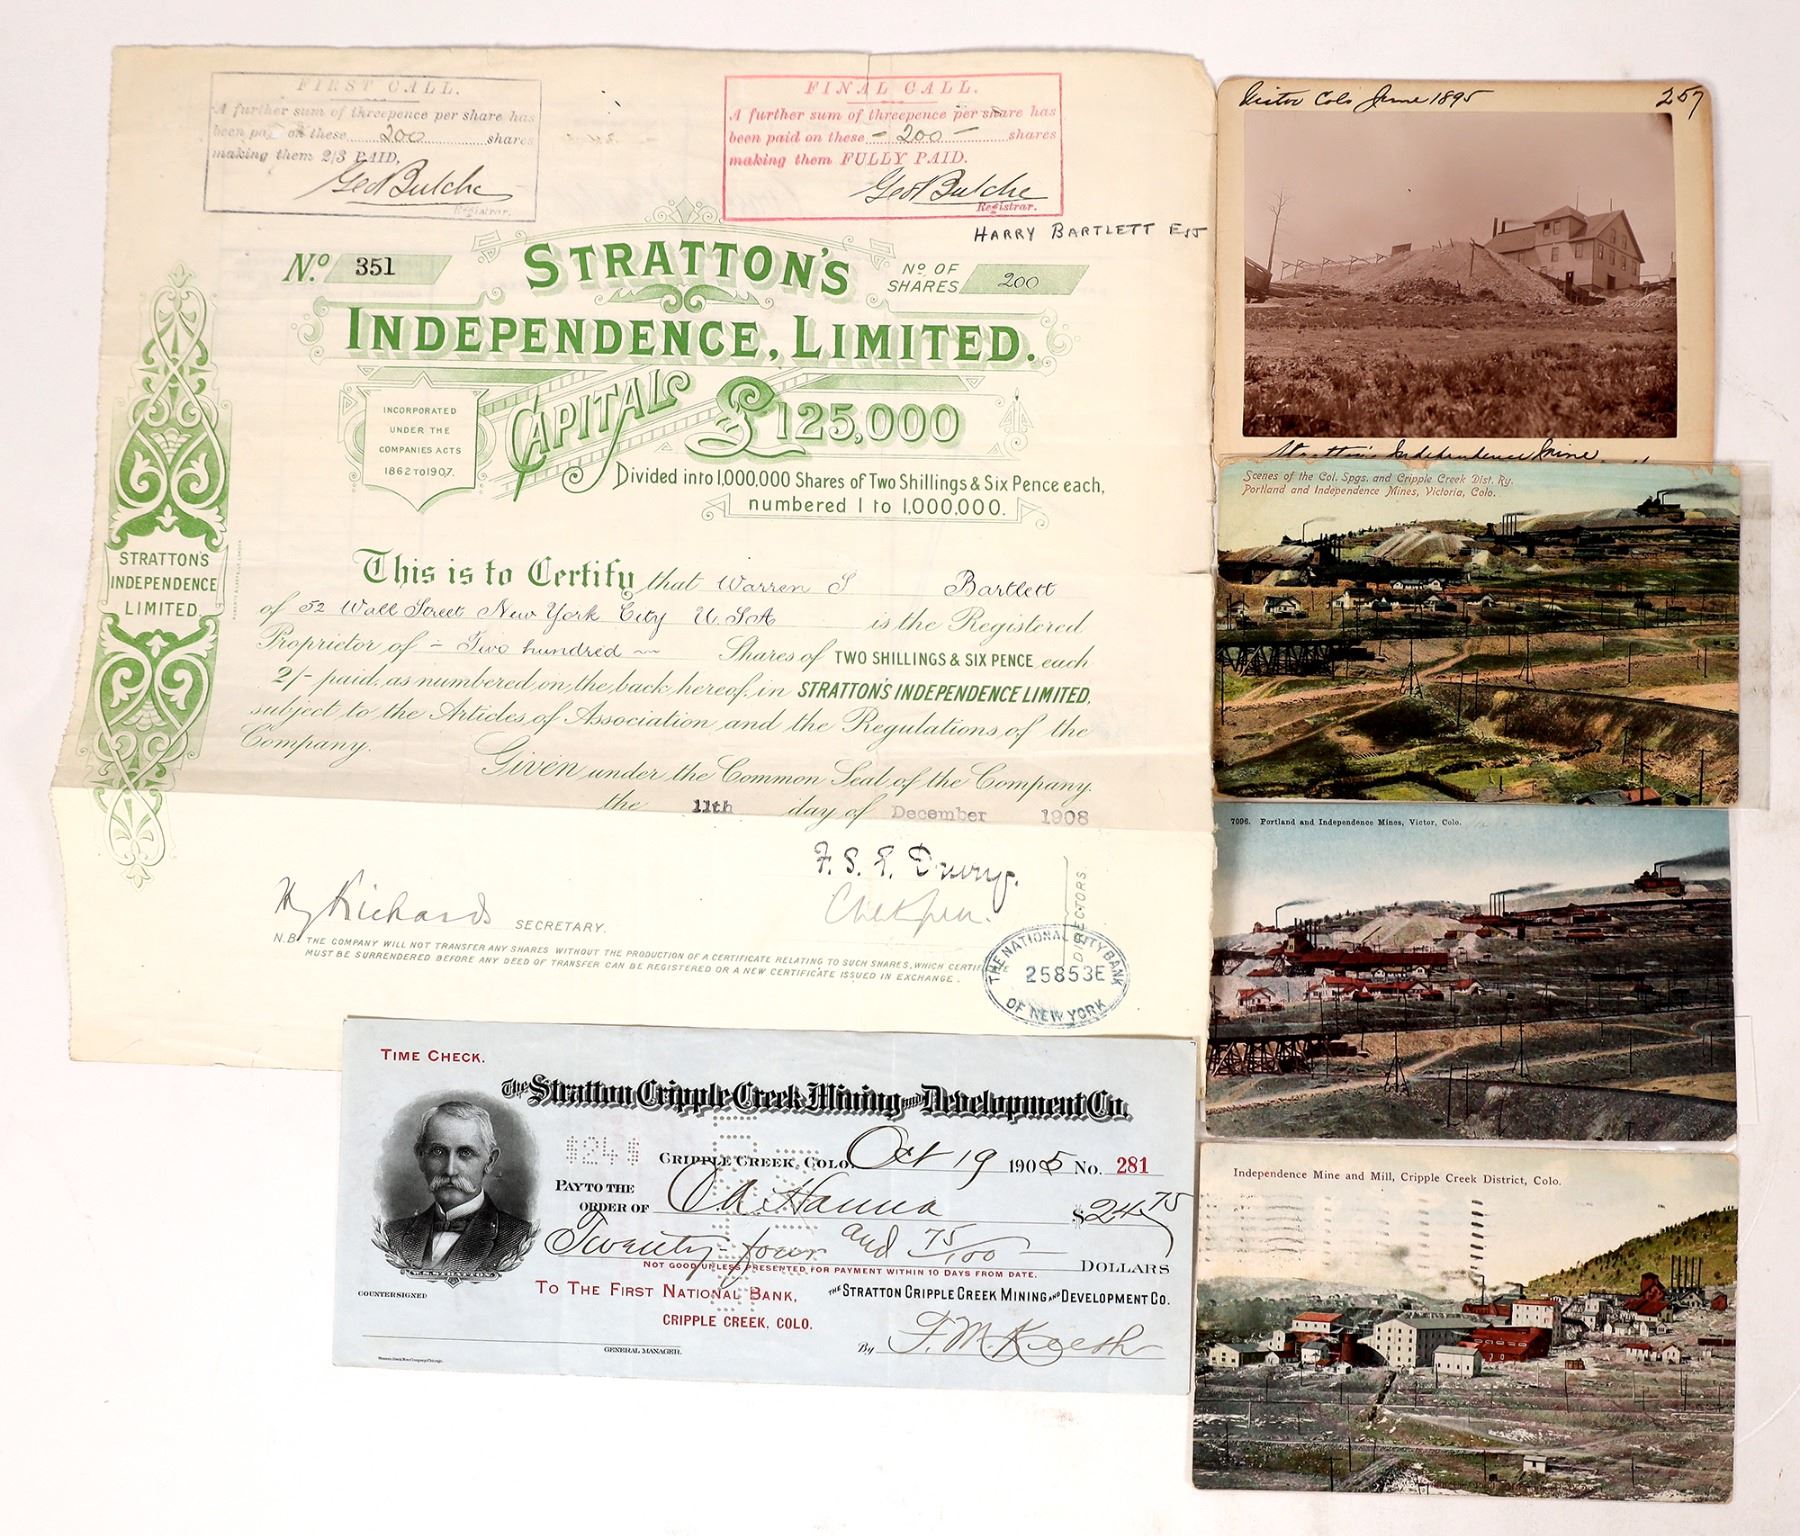 FIRST CALL.
A further sum of threepence per share has
been paid on these 200 shares
making them 2/3 PAID,
Registrar.
FINAL CALL.
A further sum of threepence per share has
been paid on these - 200 - shares
making them FULLY PAID.
Registrar.
HARRY BARTLETT Esq
No. 351
STRATTON'S
No OF SHARES 200
INDEPENDENCE, LIMITED.
INCORPORATED
UNDER THE
COMPANIES ACTS
1862 TO 1907.
CAPITAL £125,000
Divided into 1,000,000 Shares of Two Shillings & Six Pence each,
numbered 1 to 1,000,000.
STRATTON'S
INDEPENDENCE
LIMITED.
This is to Certify that Warren S Bartlett
of 52 Wall Street New York City U.S.A is the Registered
Proprietor of - Two hundred - Shares of TWO SHILLINGS & SIX PENCE each
2/- paid, as numbered on the back hereof, in STRATTON'S INDEPENDENCE LIMITED,
subject to the Articles of Association and the Regulations of the
Company. Given under the Common Seal of the Company.
the 11th day of December 1908
DIRECTORS.
Richards SECRETARY.
N.B. THE COMPANY WILL NOT TRANSFER ANY SHARES WITHOUT THE PRODUCTION OF A CERTIFICATE RELATING TO SUCH SHARES, WHICH CERTIF
MUST BE SURRENDERED BEFORE ANY DEED OF TRANSFER CAN BE REGISTERED OR A NEW CERTIFICATE ISSUED IN EXCHANGE.
THE NATIONAL CITY BANK
25853E
OF NEW YORK
TIME CHECK.
The Stratton Cripple Creek Mining and Development Co.
$24$
CRIPPLE CREEK, COLO. Oct 19 1905 No. 281
PAY TO THE
ORDER OF O A Hanna $24 75
Twenty-four and 75/100 DOLLARS
NOT GOOD UNLESS PRESENTED FOR PAYMENT WITHIN 10 DAYS FROM DATE.
W.S. STRATTON
COUNTERSIGNED
TO THE FIRST NATIONAL BANK,
CRIPPLE CREEK, COLO.
THE STRATTON CRIPPLE CREEK MINING AND DEVELOPMENT CO.
By
GENERAL MANAGER.
Victor Colo June 1895 257
Stratton's Independence Mine
Scenes of the Col. Spgs. and Cripple Creek Dist. Ry.
Portland and Independence Mines, Victoria, Colo.
7096. Portland and Independence Mines, Victor, Colo.
Independence Mine and Mill, Cripple Creek District, Colo.